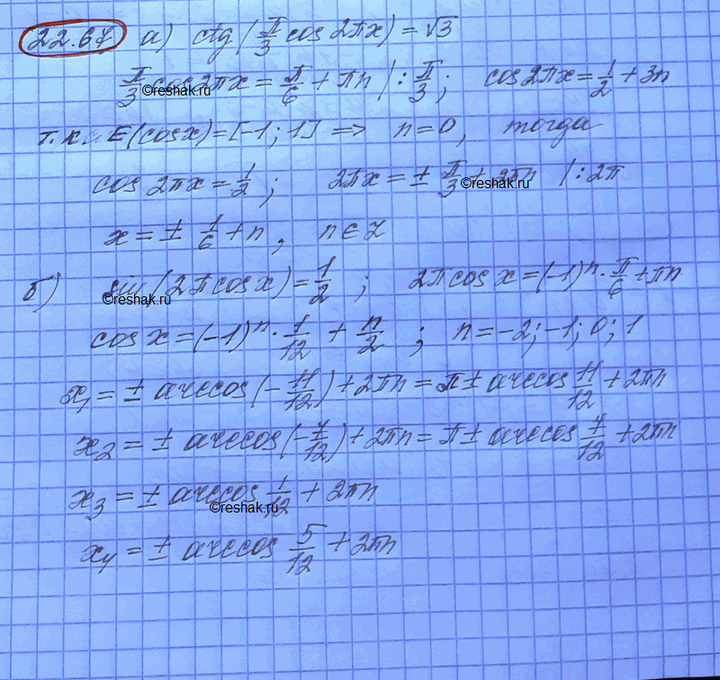 22.67 а) ctg(π/3 cos 2πx) = √3
π/3 cos 2πx = π/6 + πn |: π/3; cos 2πx = 1/2 + 3n
т.к. E(cosx) = [-1; 1] => n = 0, тогда
cos 2πx = 1/2; 2πx = ± π/3 + 2πn |: 2π
x = ± 1/6 + n, n ∈ Z
б) sin(2π cos x) = 1/2; 2π cos x = (-1)ⁿ · π/6 + πn
cos x = (-1)ⁿ · 1/12 + n/2; n = -2; -1; 0; 1
x₁ = ± arccos(-11/12) + 2πn = π ± arccos 11/12 + 2πn
x₂ = ± arccos(-7/12) + 2πn = π ± arccos 7/12 + 2πn
x₃ = ± arccos 1/12 + 2πn
x₄ = ± arccos 5/12 + 2πn
©reshak.ru
©reshak.ru
©reshak.ru
©reshak.ru